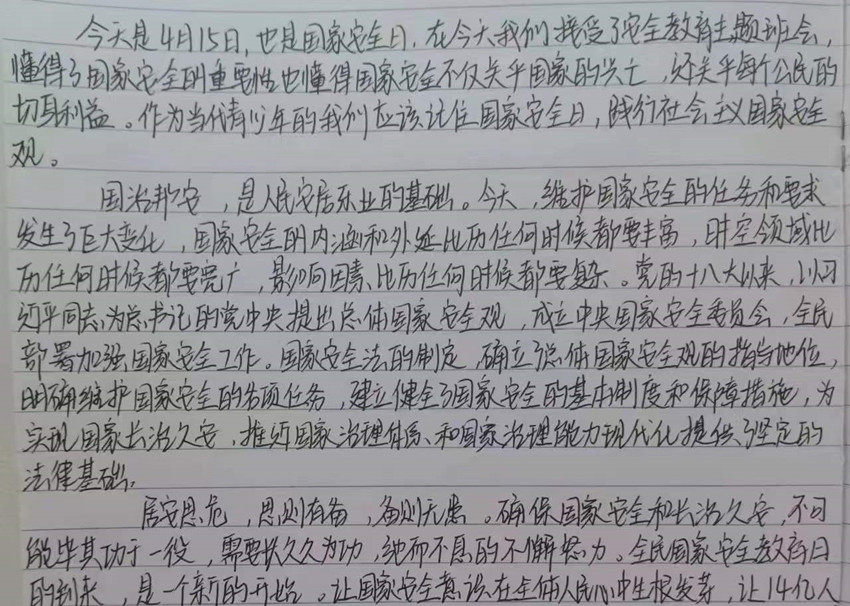 今天是4月15日，也是国家安全日，在今天我们接受了安全教育主题班会，
懂得了国家安全的重要性也懂得国家安全不仅关乎国家的兴亡，还关乎每个公民的
切身利益。作为当代青少年的我们应该记住国家安全日，践行社会主义国家安全
观。
国治邦安，是人民安居乐业的基础。今天，维护国家安全的任务和要求
发生了巨大变化，国家安全的内涵和外延比历任何时候都要丰富，时空领域比
历任何时候都要宽广，影响因素比历任何时候都要复杂。党的十八大以来，以习
近平同志为总书记的党中央提出总体国家安全观，成立中央国家安全委员会，全民
部署加强国家安全工作。国家安全法的制定，确立了总体国家安全观的指导地位，
明确维护国家安全的各项任务，建立健全了国家安全的基本制度和保障措施，为
实现国家长治久安，推近国家治理体系和国家治理能力现代化提供了坚定的
法律基础。
居安思危，思则有备，备则无患。确保国家安全和长治久安，不可
能毕其功于一役，需要长久久为功，绝而不息的不懈努力。全民国家安全教育日
的到来，是一个新的开始。让国家安全意识在全体人民心中生根发芽，让14亿人